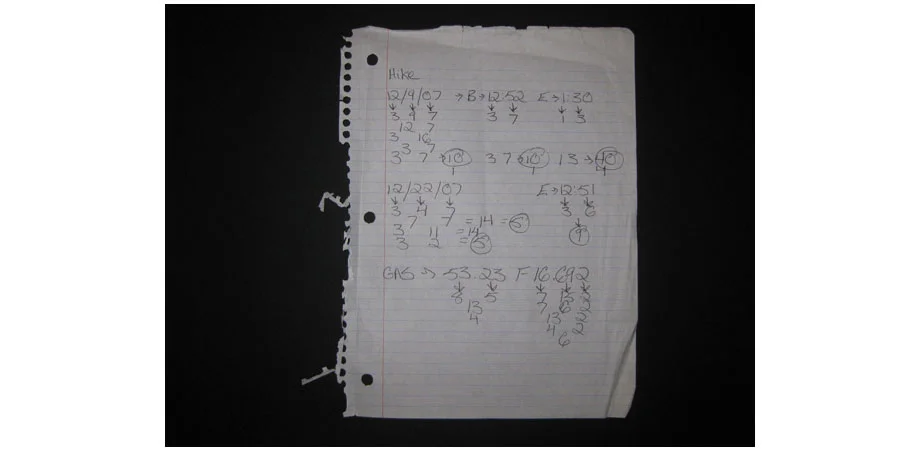 Hike
12/9/07 → B → 12:52 E → 1:30
3 9 7 3 7 1 3
12 7
3 16
3 7
3 7 → 10 3 7 → 10 1 3 → 40
1 1 4
12/22/07 E → 12:51
3 4 7 3 6
7 7 = 14 = 5
3 11 = 14 9
3 2 = 5
GAS → 53.23 F 16.692
8 5 7 15 2
13 7 6 2
4 13 2
4 2
6